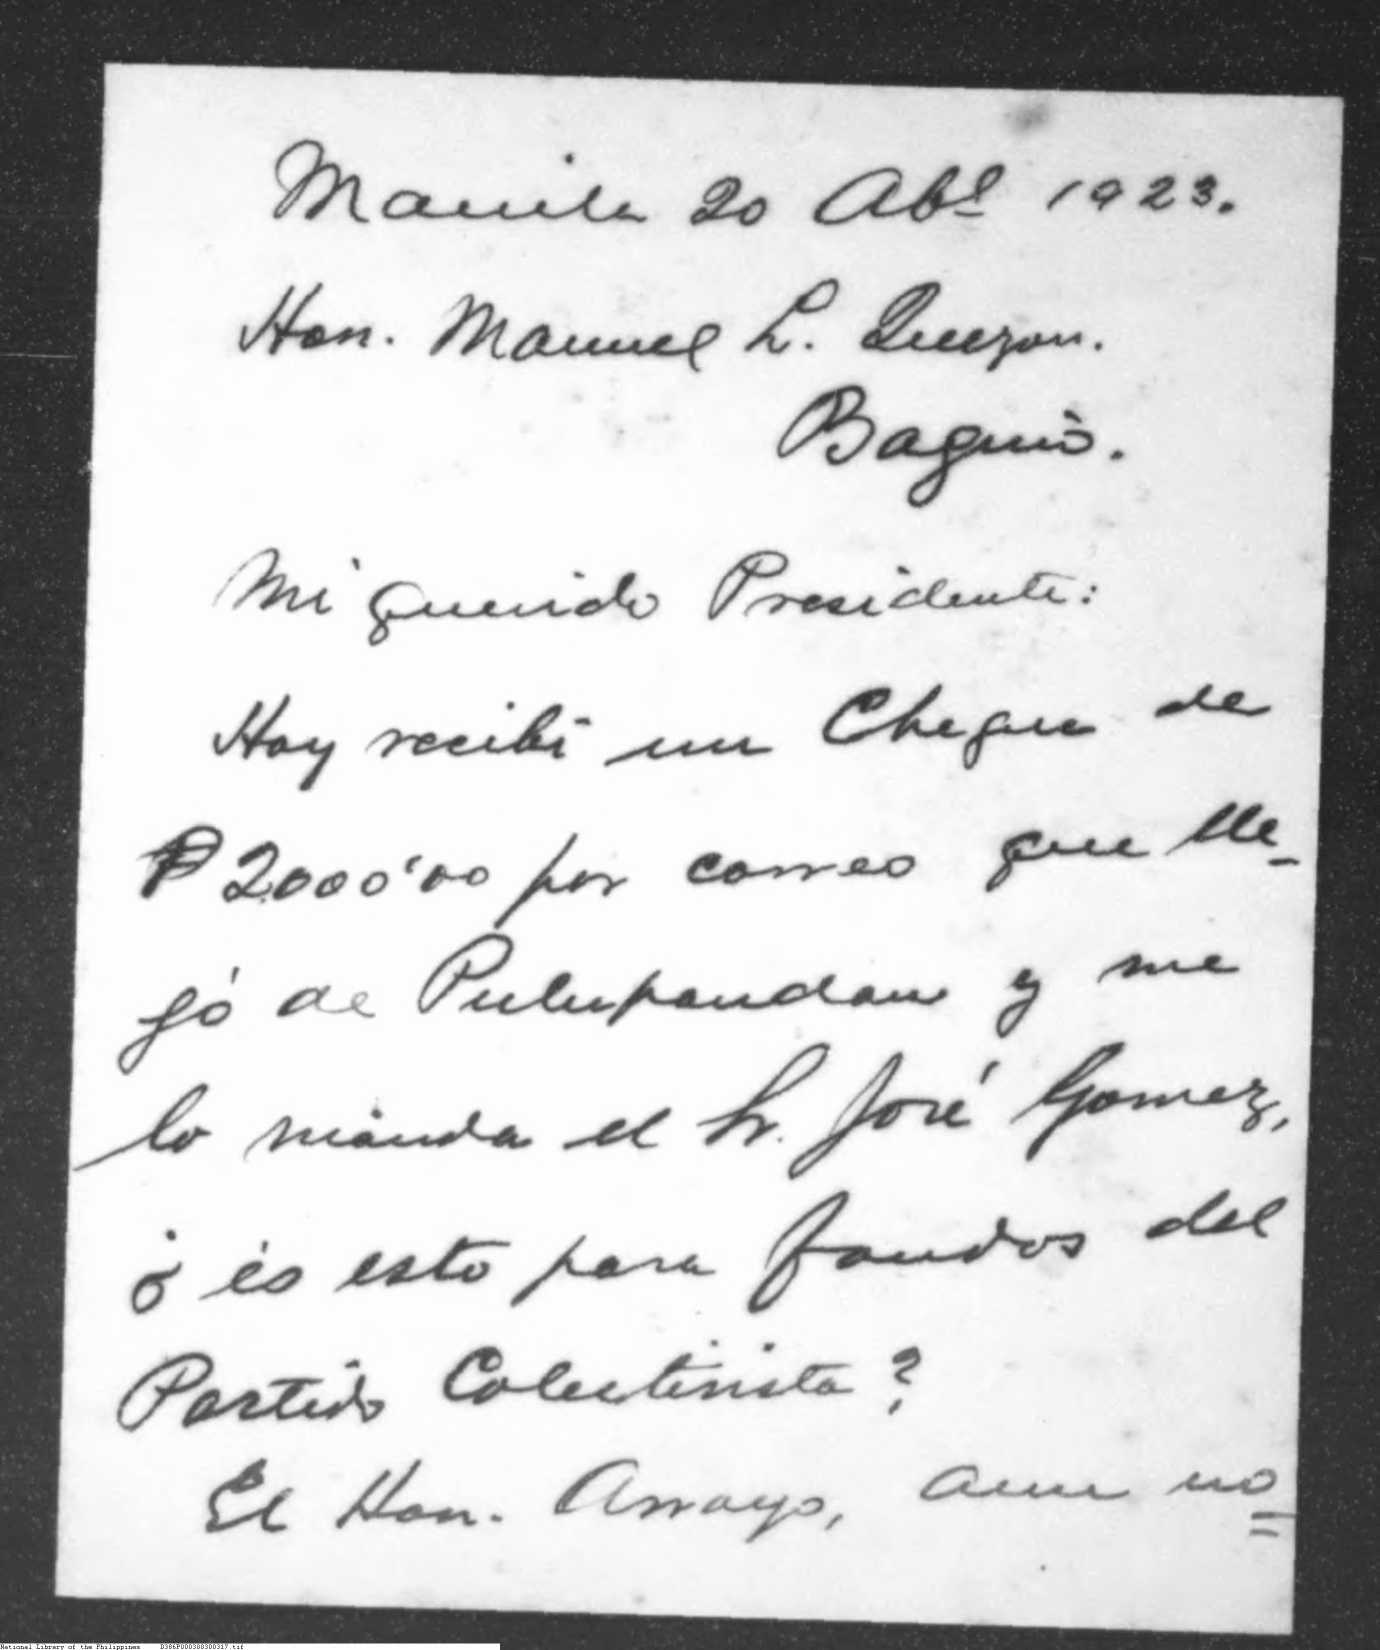 Manila 20 Abl 1923.
Hon. Manuel L. Quezon.
Baguio.
Mi querido Presidente:
Hoy recibí un Cheque de
₱2000'00 por correo que lle-
gó de Pulupandan y me
lo manda el Sr. José Gomez,
¿ es esto para fondos del
Partido Colectivista?
El Hon. Arroyo, aun no
National Library of the Philippines D386P000300300317.tif